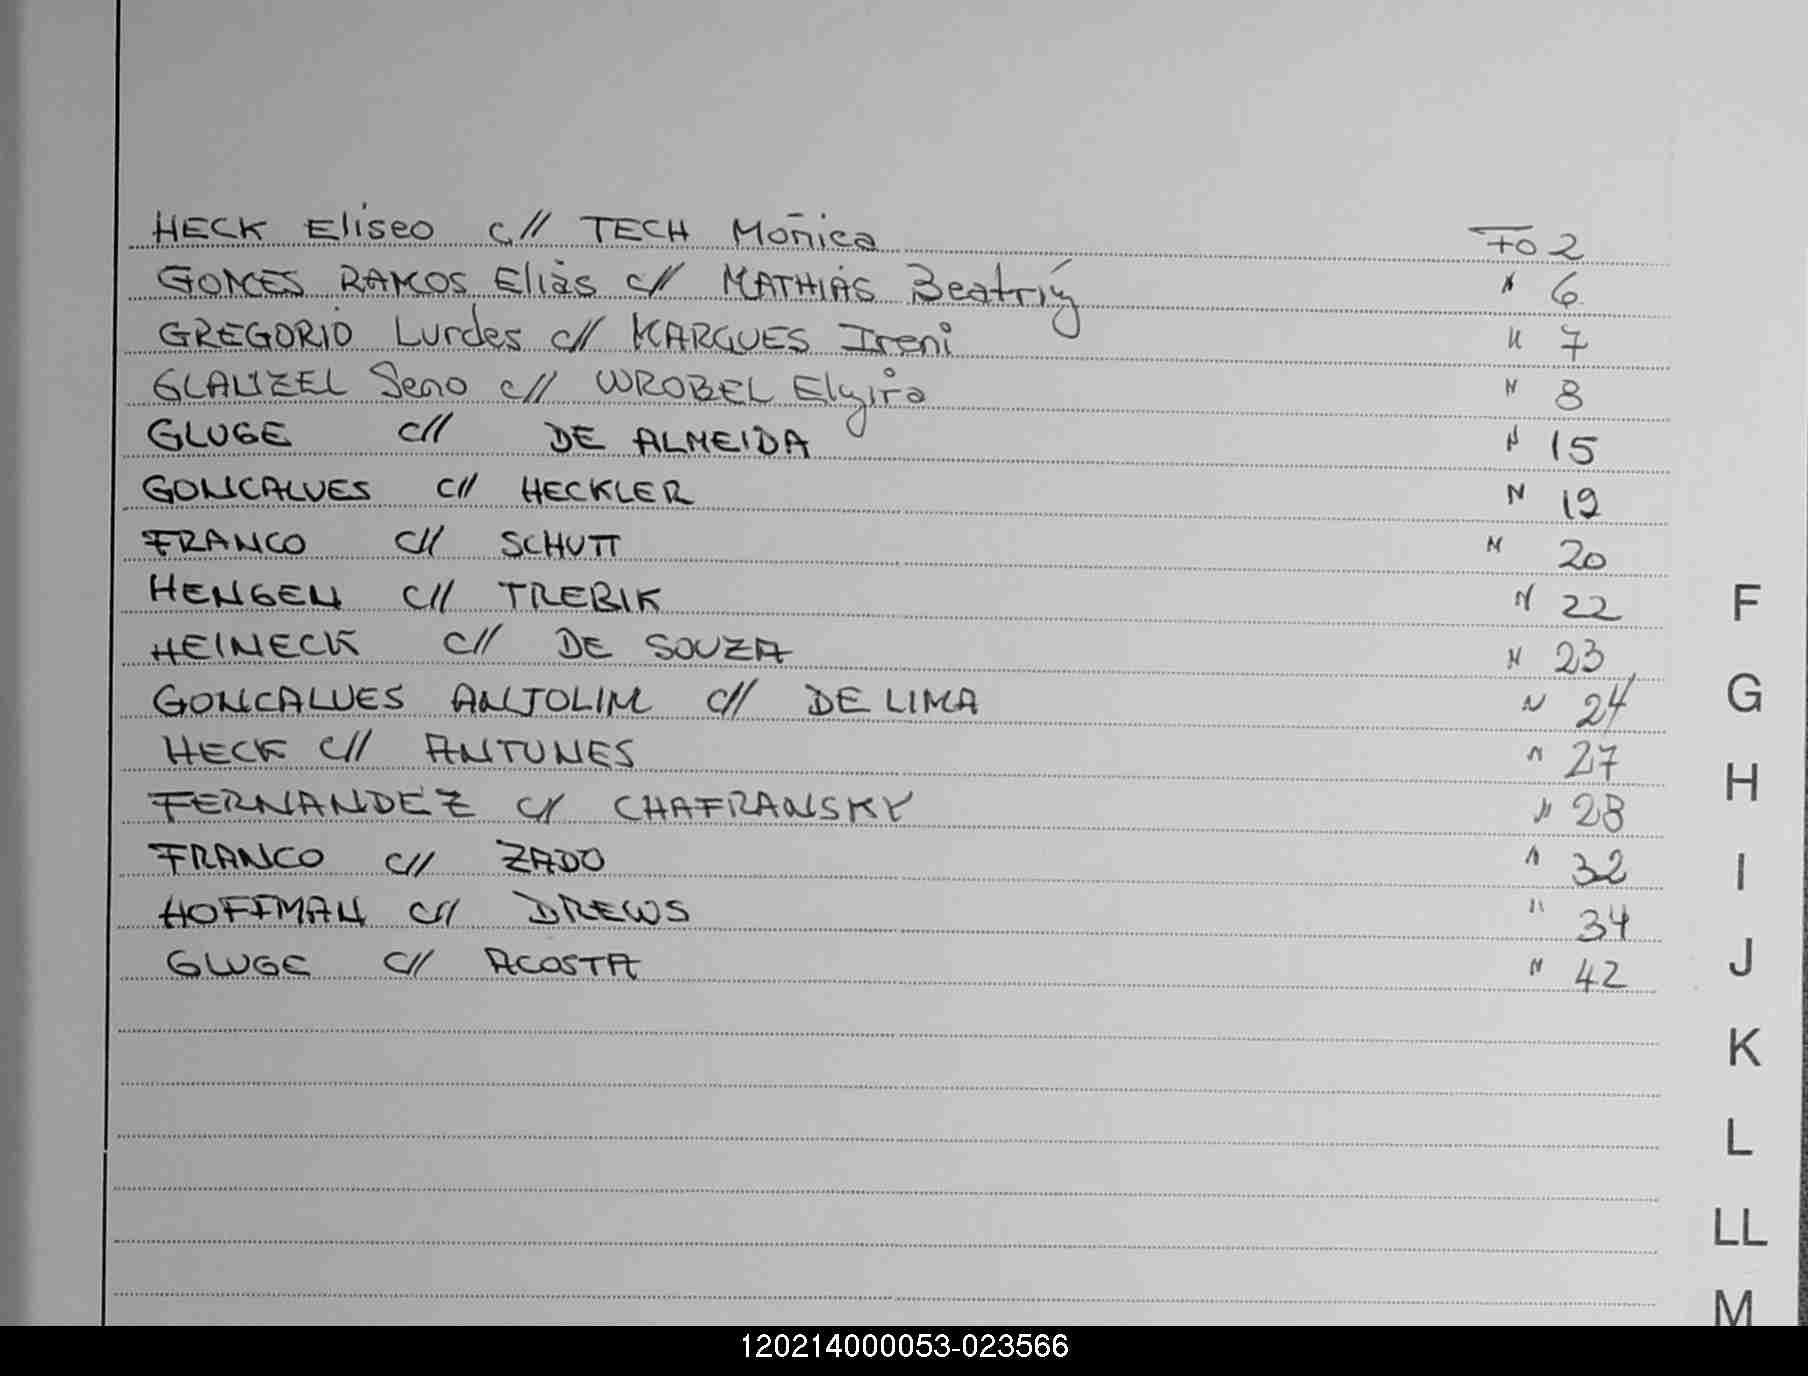 HECK Eliseo c// TECH Mónica Fo 2
GOMES RAMOS Eliàs c// MATHIAS Beatriz " 6
GREGORIO Lurdes c// MARQUES Ireni " 7
GLAUZEL Seno c// WROBEL Elgira " 8
GLUGE c// DE ALMEIDA " 15
GONCALVES c// HECKLER " 19
FRANCO c// SCHUTT " 20
HENGEN c// TREBIK " 22
HEINECK c// DE SOUZA " 23
GONCALVES ANJOLIM c// DE LIMA " 24
HECK c// ANTUNES " 27
FERNANDEZ c/ CHAFRANSKY " 28
FRANCO c// ZADO " 32
HOFFMAN c// DREWS " 34
GLUGE c// ACOSTA " 42
F
G
H
I
J
K
L
LL
M
120214000053-023566